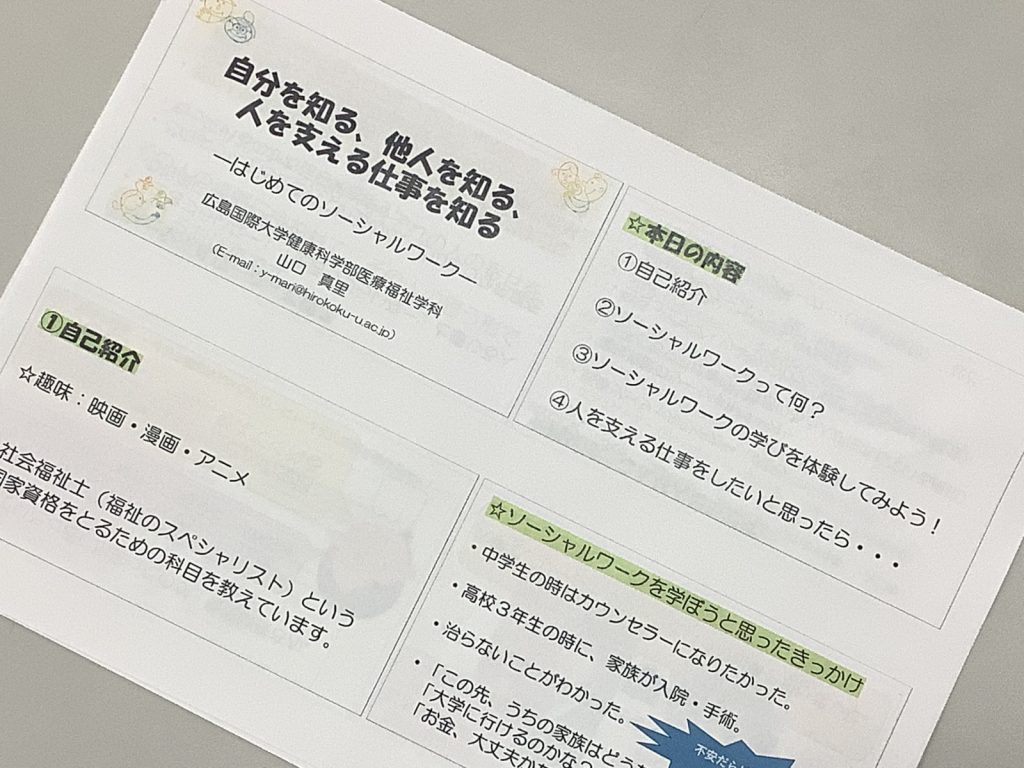 自分を知る、他人を知る、
人を支える仕事を知る
―はじめてのソーシャルワーク―
広島国際大学健康科学部医療福祉学科
山口 真里
(E-mail：y-mari@hirokoku-u.ac.jp)
☆本日の内容
①自己紹介
②ソーシャルワークって何？
③ソーシャルワークの学びを体験してみよう！
④人を支える仕事をしたいと思ったら・・・
①自己紹介
☆趣味：映画・漫画・アニメ
社会福祉士（福祉のスペシャリスト）という
国家資格をとるための科目を教えています。
☆ソーシャルワークを学ぼうと思ったきっかけ
・中学生の時はカウンセラーになりたかった。
・高校３年生の時に、家族が入院・手術。
・治らないことがわかった。
・「この先、うちの家族はどう
「大学に行けるのかな？
「お金、大丈夫か
不安だら